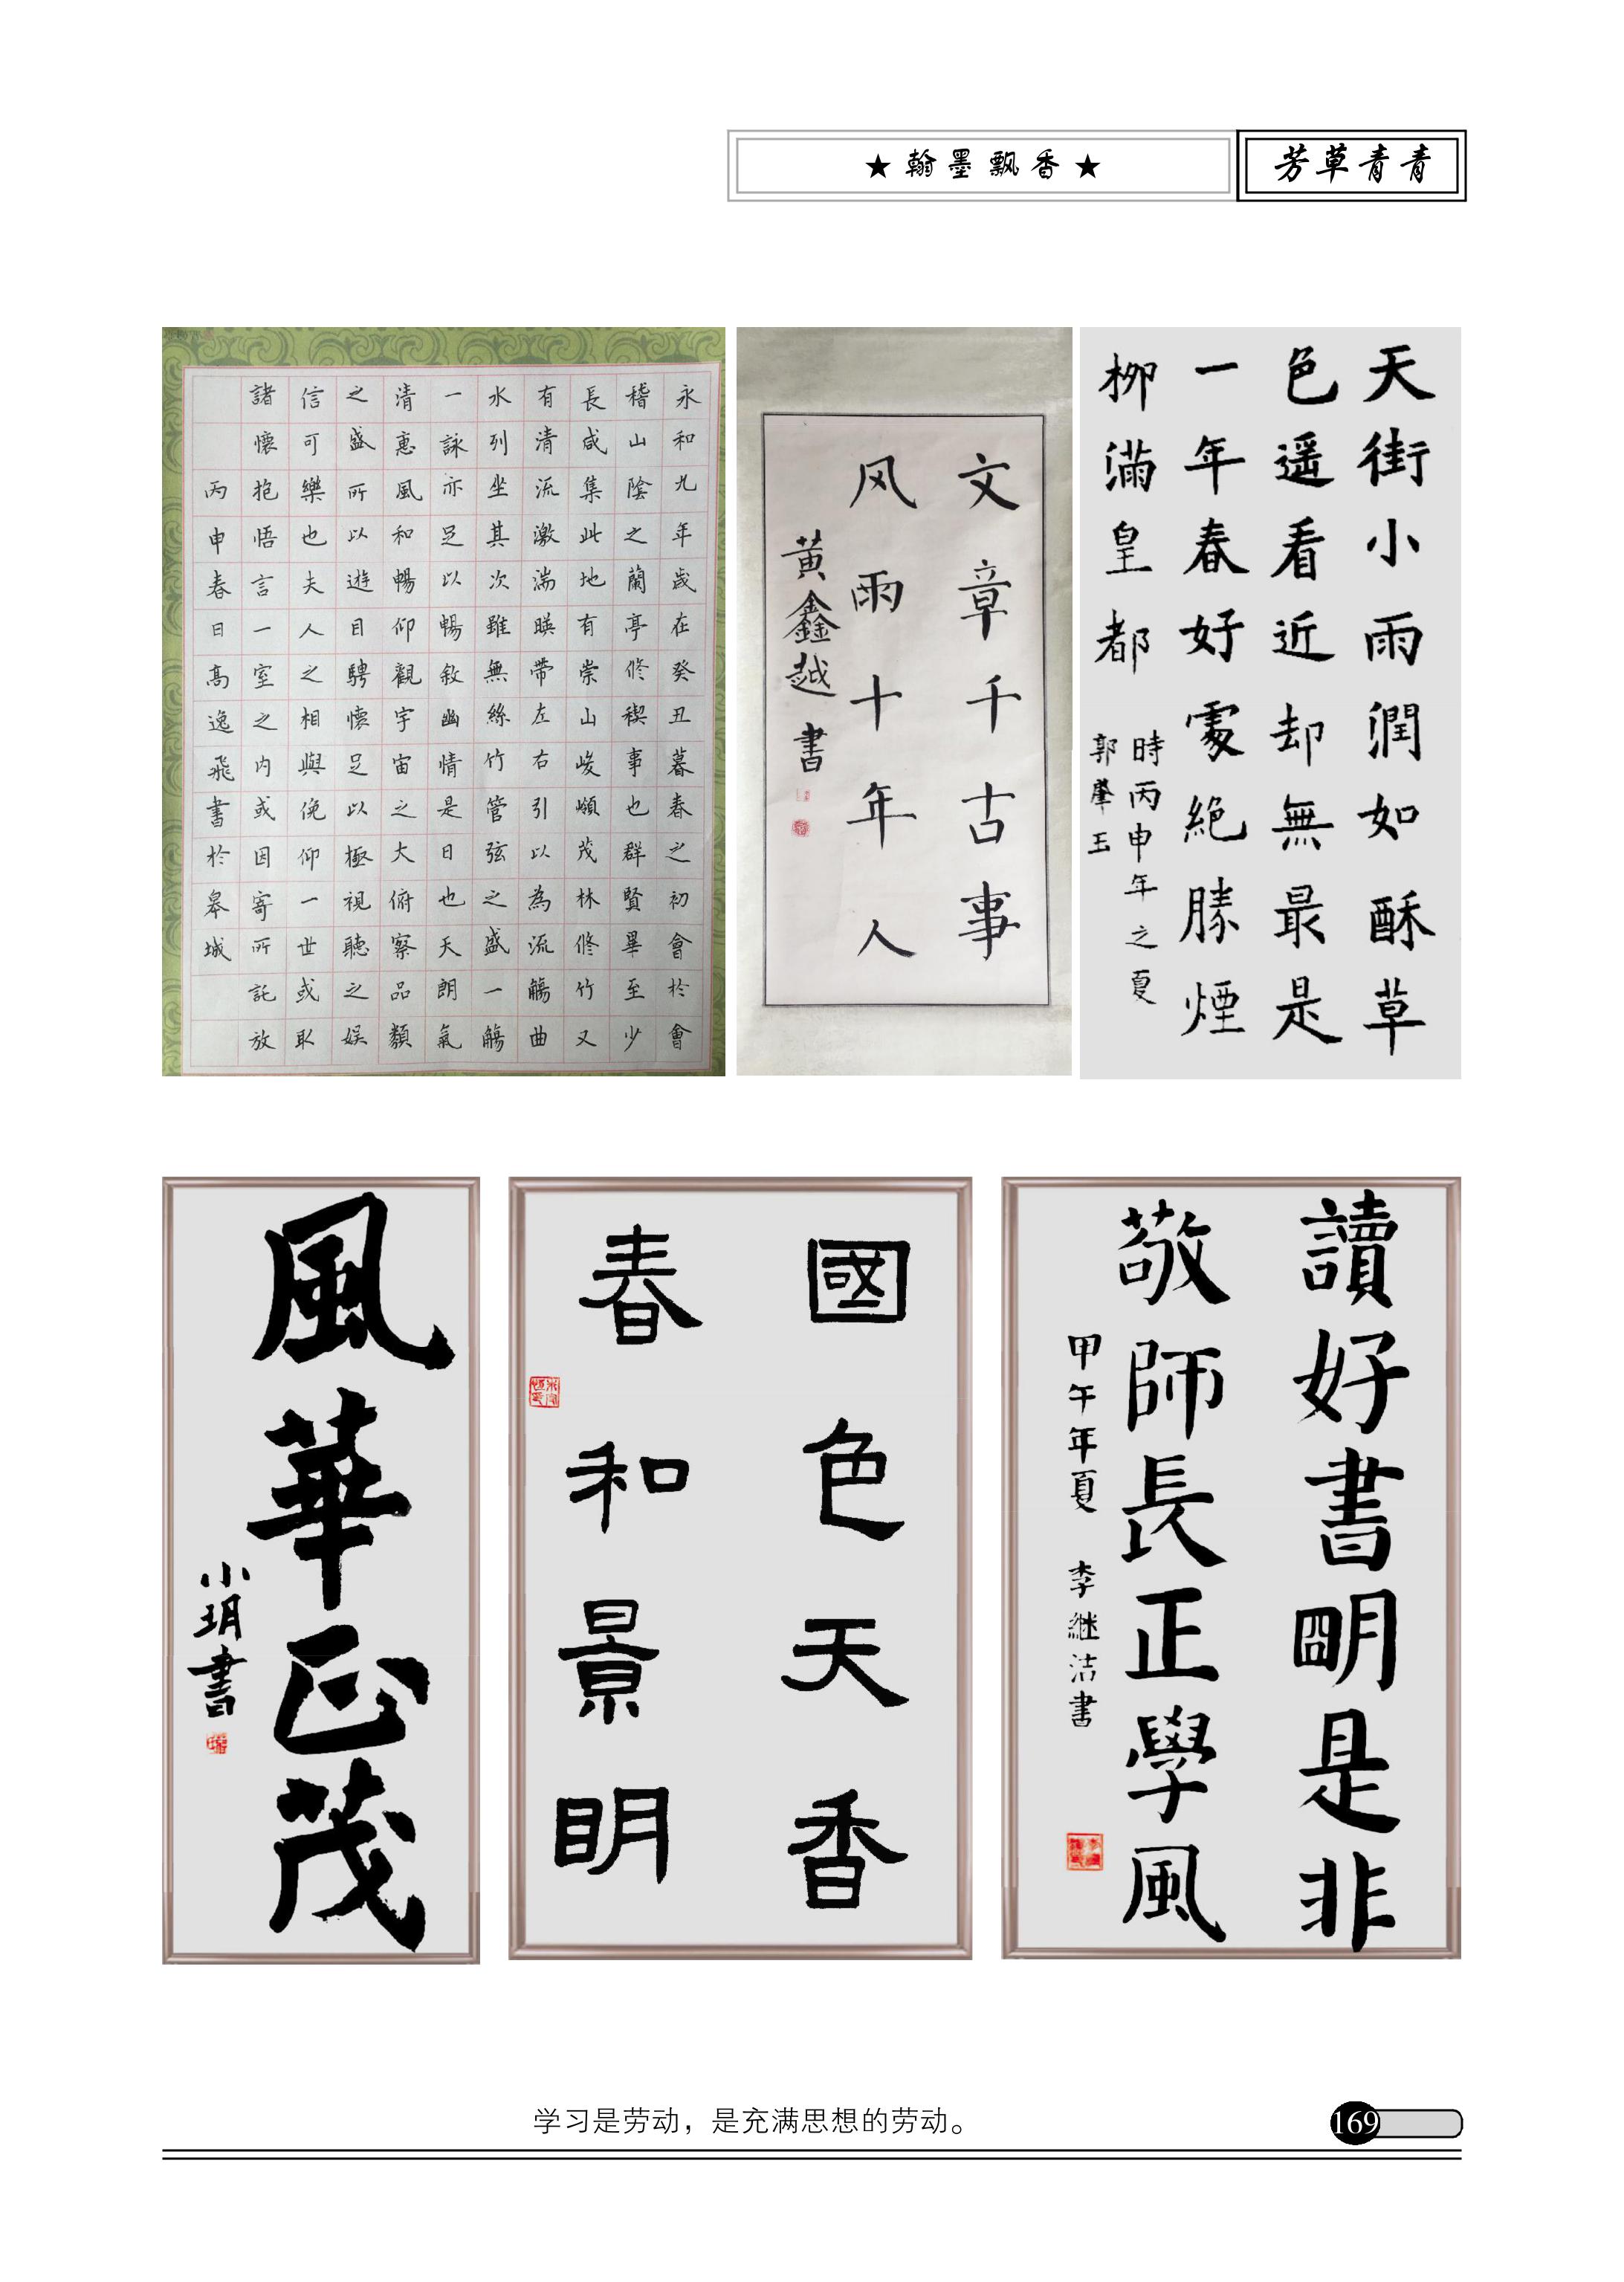 ★翰墨飘香★
芳草青青
永和九年歲在癸丑暮春之初會於會
稽山陰之蘭亭修稧事也群賢畢至少
長咸集此地有崇山峻嶺茂林修竹又
有清流激湍暎帶左右引以為流觴曲
水列坐其次雖無絲竹管弦之盛一觴
一詠亦足以暢敘幽情是日也天朗氣
清惠風和暢仰觀宇宙之大俯察品類
之盛所以遊目騁懷足以極視聽之娛
信可樂也夫人之相與俛仰一世或取
諸懷抱悟言一室之內或因寄所託放
丙申春日高逸飛書於皋城
文章千古事
风雨十年人
黄鑫越書
天街小雨潤如酥草
色遥看近却無最是
一年春好處絶勝煙
柳滿皇都
時丙申年之夏
郭肇玉
風華正茂
小玥書
國色天香
春和景明
讀好書明是非
敬師長正學風
甲午年夏 李继洁書
学习是劳动，是充满思想的劳动。
169